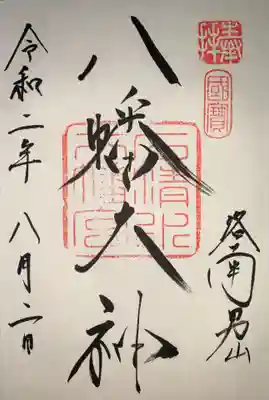 奉拝
國寶
洛南男山
八幡大神
石清水
八幡宮
令和二年八月二日